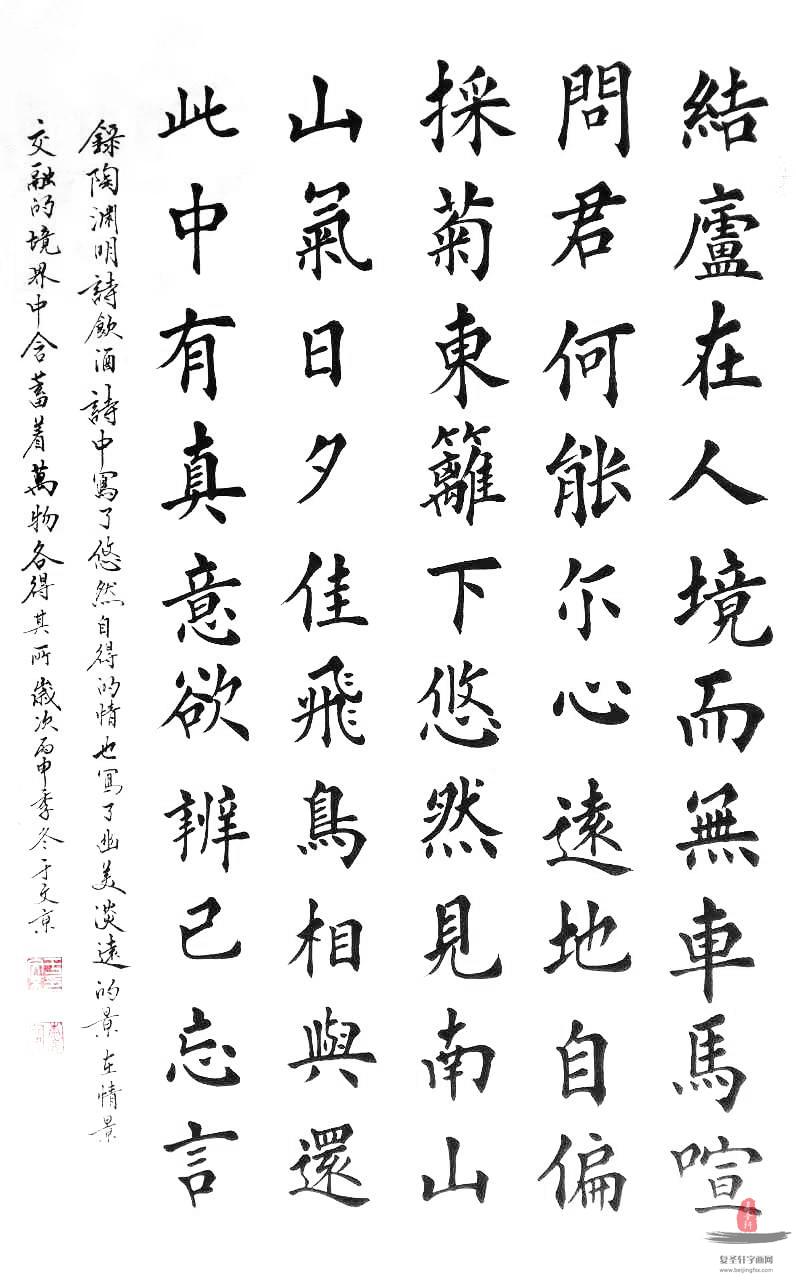 結廬在人境而無車馬喧
問君何能尓心遠地自偏
採菊東籬下悠然見南山
山氣日夕佳飛鳥相與還
此中有真意欲辨已忘言
録陶渊明詩飲酒詩中寫了悠然自得的情也寫了幽美淡遠的景在情景
交融的境界中含蓄着萬物各得其所歲次丙申季冬于文京
复圣轩字画网
www.beijingfsx.com